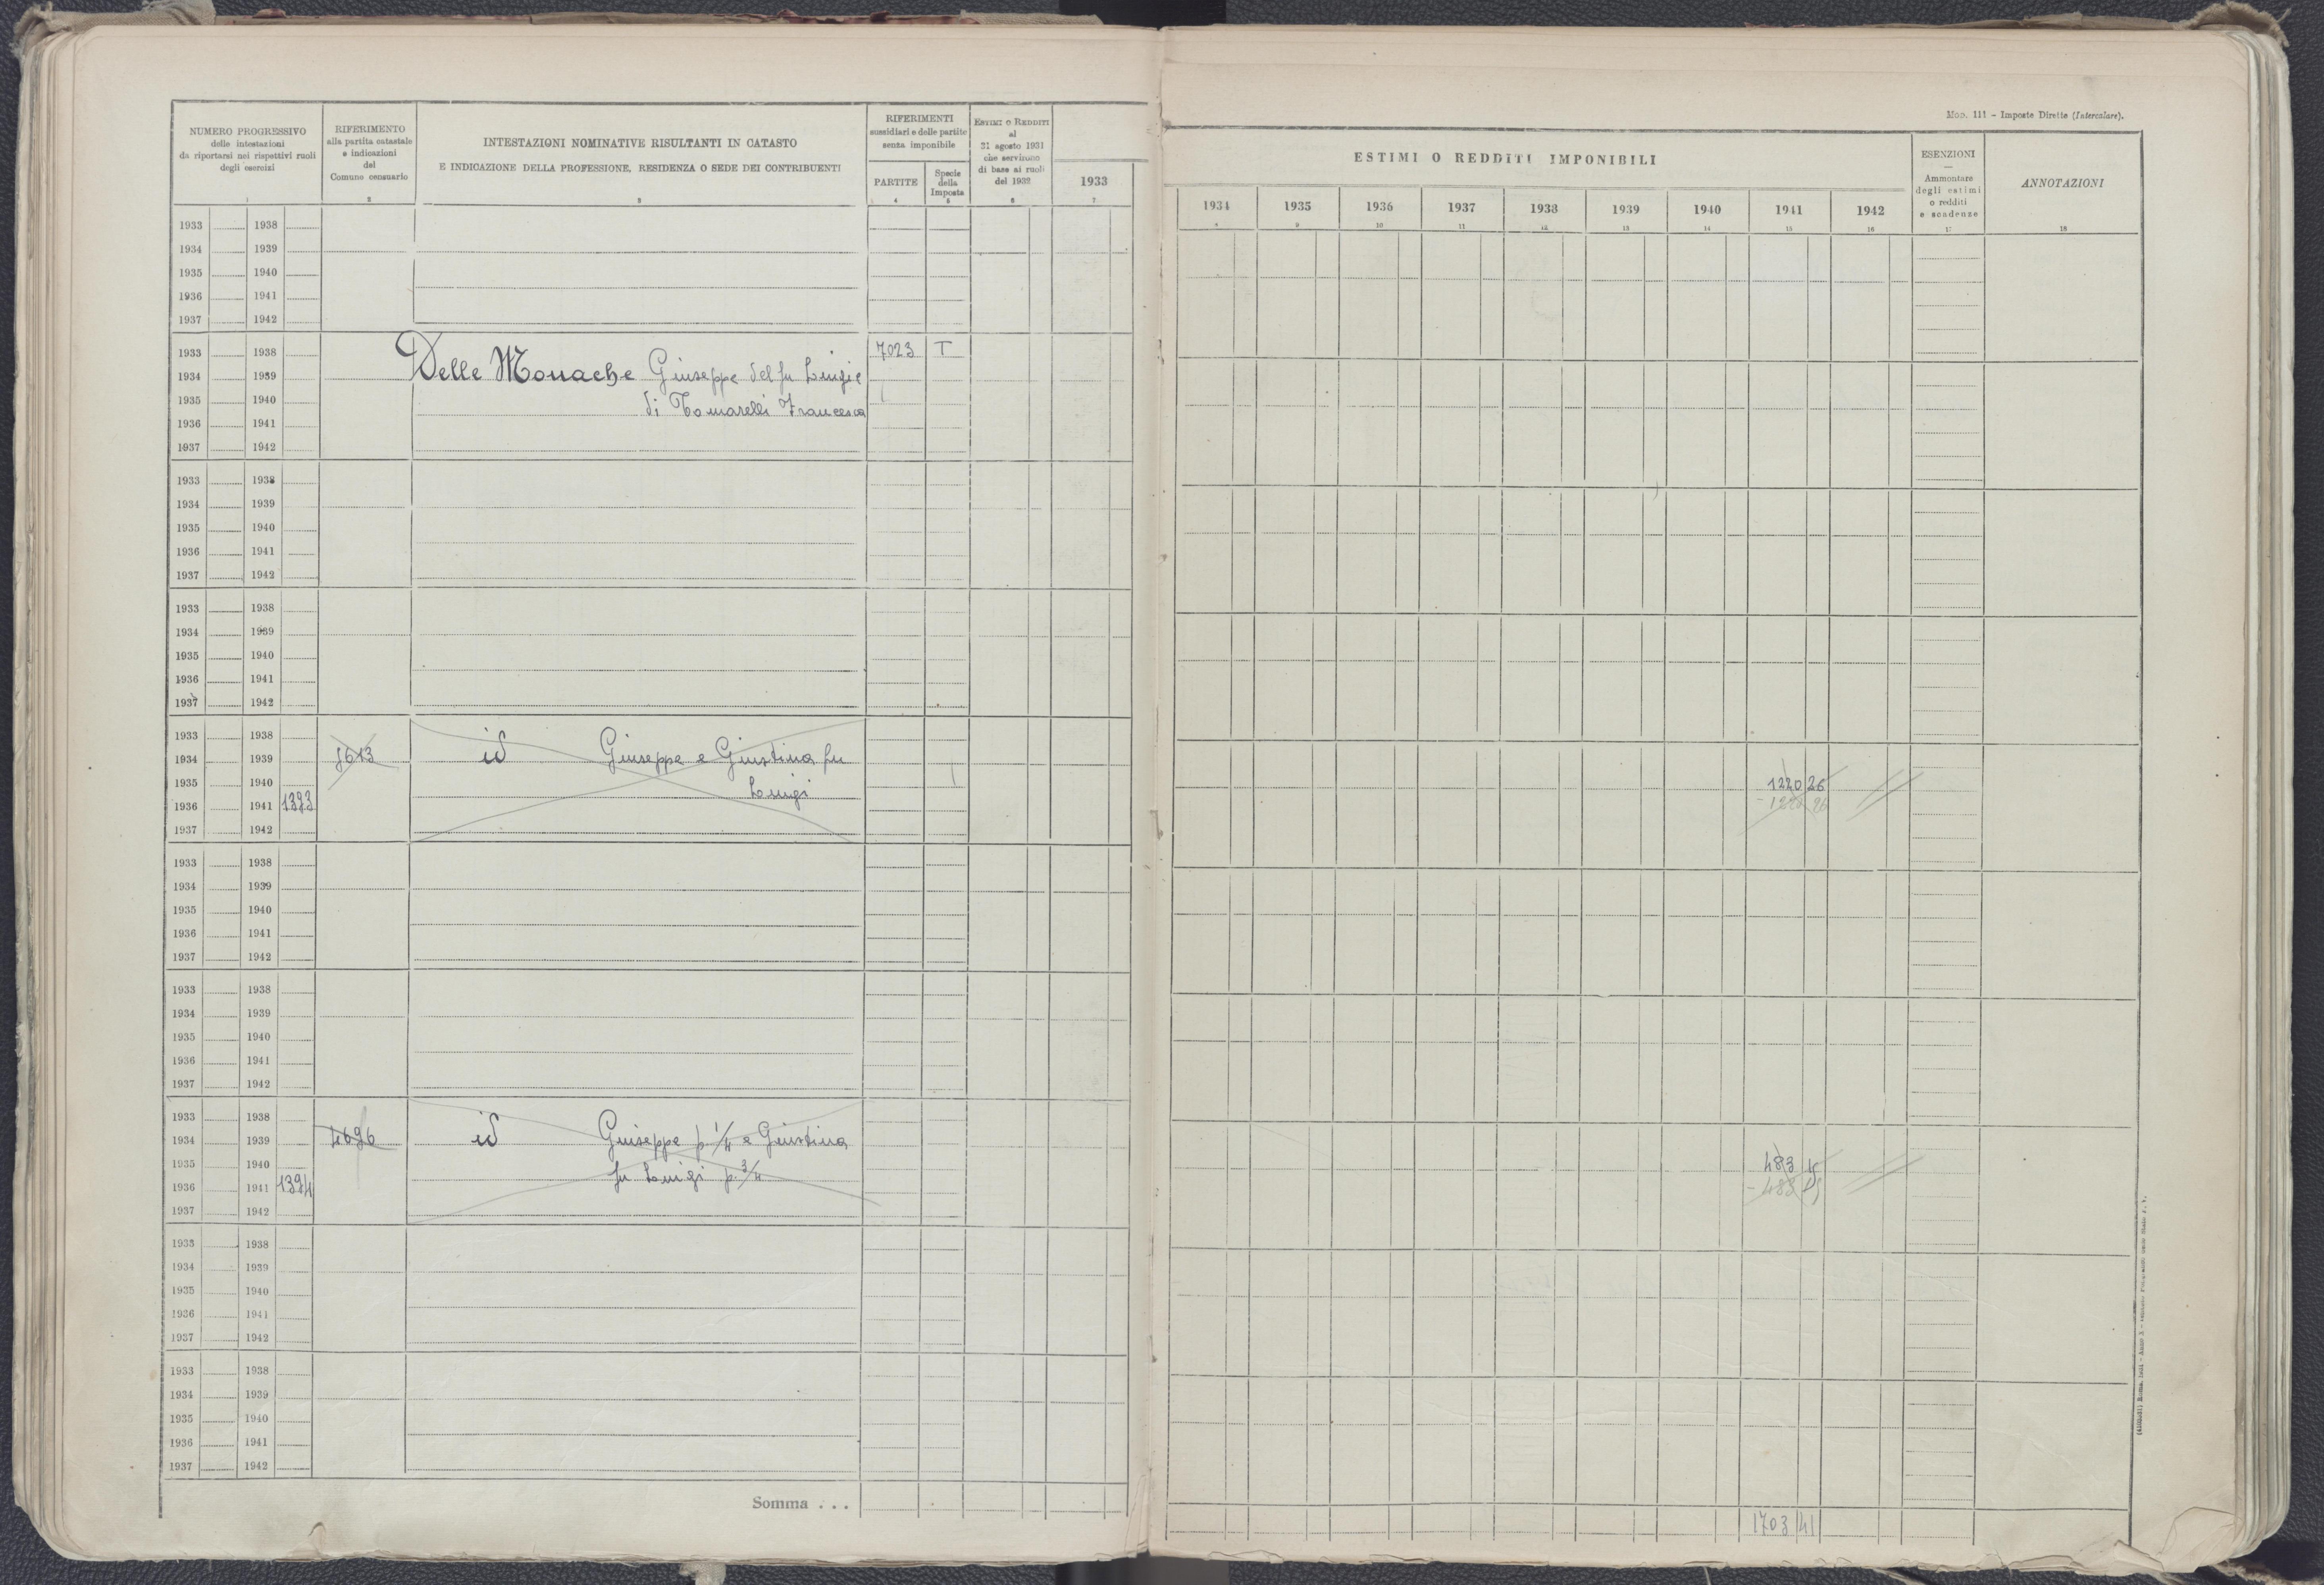 NUMERO PROGRESSIVO
delle intestazioni
da riportarsi nei rispettivi ruoli
degli esercizi
1
RIFERIMENTO
alla partita catastale
e indicazioni
del
Comune censuario
2
INTESTAZIONI NOMINATIVE RISULTANTI IN CATASTO
E INDICAZIONE DELLA PROFESSIONE, RESIDENZA O SEDE DEI CONTRIBUENTI
3
RIFERIMENTI
sussidiari e delle partite
senza imponibile
PARTITE
4
Specie
della
Imposta
5
ESTIMI O REDDITI
al
31 agosto 1931
che servirono
di base ai ruoli
del 1932
6
1933
7
Mod. 111 - Imposte Dirette (Intercalare).
ESTIMI O REDDITI IMPONIBILI
1934 1935 1936 1937 1938 1939 1940 1941 1942
8 9 10 11 12 13 14 15 16
ESENZIONI
—
Ammontare
degli estimi
o redditi
e scadenze
17
ANNOTAZIONI
18
1933 1938
1934 1939
1935 1940
1936 1941
1937 1942
1933 1938 7023 T
1934 1939 Delle Monache Giuseppe del fu Luigi e
1935 1940 di Tomarelli Francesca
1936 1941
1937 1942
1933 1938
1934 1939
1935 1940
1936 1941
1937 1942
1933 1938
1934 1939
1935 1940
1936 1941
1937 1942
1933 1938
1934 1939 id Giuseppe e Giustina fu
1935 1940 Luigi 1220 26
1936 1941 1393 - 1220 26
1937 1942
1933 1938
1934 1939
1935 1940
1936 1941
1937 1942
1933 1938
1934 1939
1935 1940
1936 1941
1937 1942
1933 1938
1934 1939 4696 id Giuseppe p 1/4 e Giustina
1935 1940 fu Luigi p. 3/4 483 15
1936 1941 1394 - 483 15
1937 1942
1933 1938
1934 1939
1935 1940
1936 1941
1937 1942
1933 1938
1934 1939
1935 1940
1936 1941
1937 1942
Somma . . . 1703 41